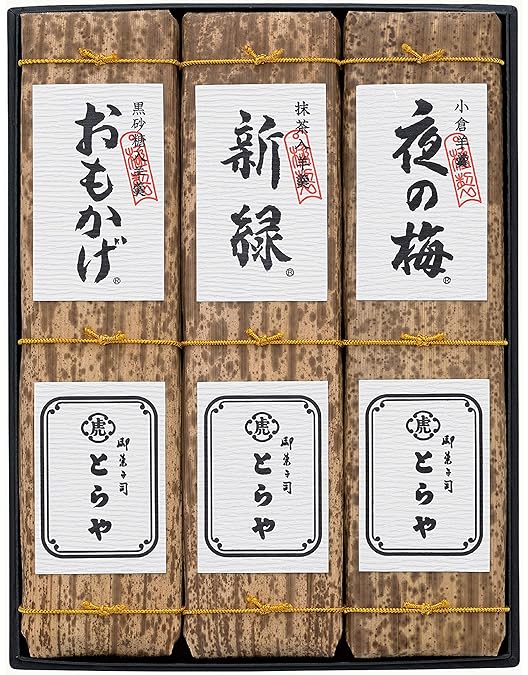 小倉羊羹
夜の梅®
抹茶入羊羹
新緑®
黒砂糖入羊羹
おもかげ®
虎
御菓子司
とらや
虎
御菓子司
とらや
虎
御菓子司
とらや